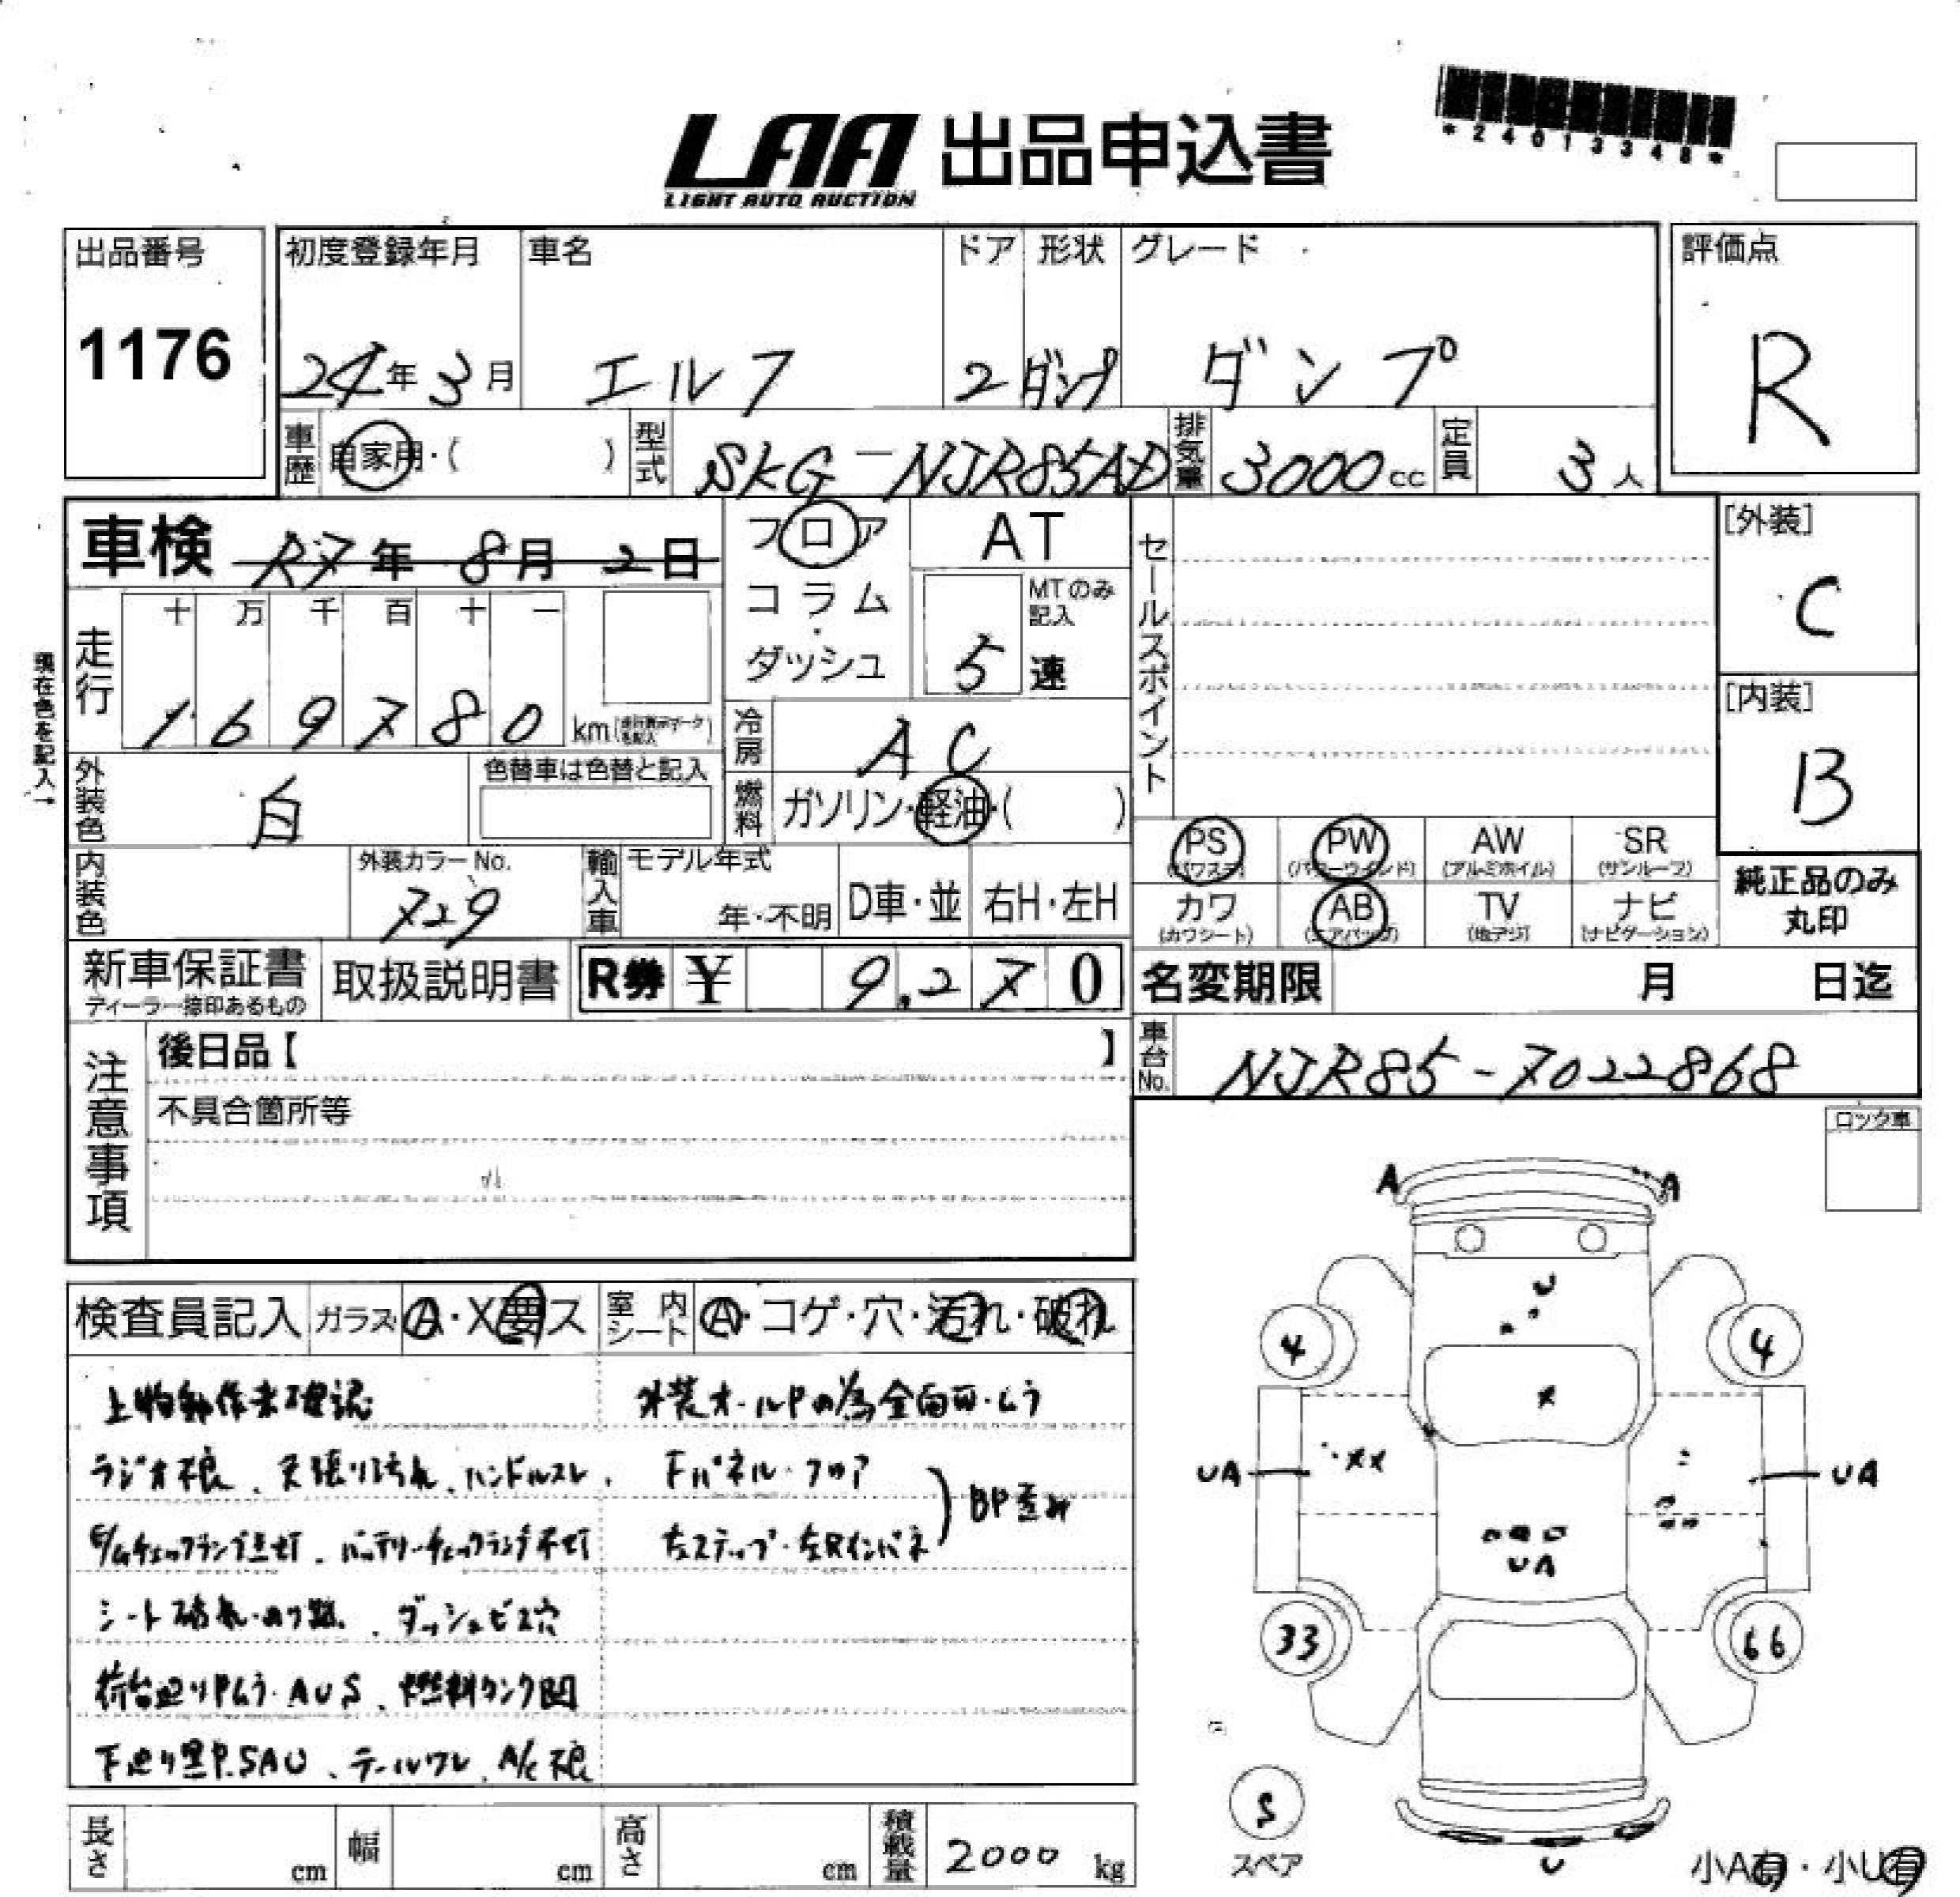 LAA 出品申込書
LIGHT AUTO AUCTION
*24013348*
出品番号
1176
初度登録年月 車名 ドア 形状 グレード
24年3月 エルフ 2 ダンプ ダンプ
評価点
R
車歴 自家用・( ) 型式 SKG-NJR85AD 排気量 3000cc 定員 3人
車検 R7年 8月 2日
フロア
コラム・
ダッシュ
AT
MTのみ記入
5 速
セールスポイント
[外装]
C
[内装]
B
現在色を記入→
走行 十 万 千 百 十 一
1 6 9 7 8 0 km
冷房 AC
燃料 ガソリン・軽油・( )
外装色 白 色替車は色替と記入
内装色 外装カラーNo. 729
輸入車 モデル年式 年・不明 D車・並 右H・左H
PS (パワステ) PW (パワーウインド) AW (アルミホイル) SR (サンルーフ)
カワ (カワシート) AB (エアバッグ) TV (地デジ) ナビ (ナビゲーション)
純正品のみ
丸印
新車保証書 ディーラー捺印あるもの 取扱説明書 R券 ¥ 9,270
名変期限 月 日迄
車台No. NJR85-7022868
注意事項
後日品【 】
不具合箇所等
ロック車
検査員記入 ガラス A・X要ス 室内シート A・コゲ・穴・汚れ・破れ
上物動作未確認
ラジオ不良、天張り汚れ、ハンドルスレ、
E/Gチェックランプ点灯、バッテリーチェックランプ不灯
シート破れ・
ダッシュビス穴
荷台廻りPムラ・AUS、燃料タンク凹
下廻り黒P.SAU、テールワレ、A/C不良
外装オールPの為全面
ムラ
下パネル・フロア
左ステップ・左Rインパネ
BP歪み
A A
U
4 4
X
UA XX UA
UA
33 66
S
スペア
U
小A有・小U有
長さ cm 幅 cm 高さ cm 積載量 2000 kg